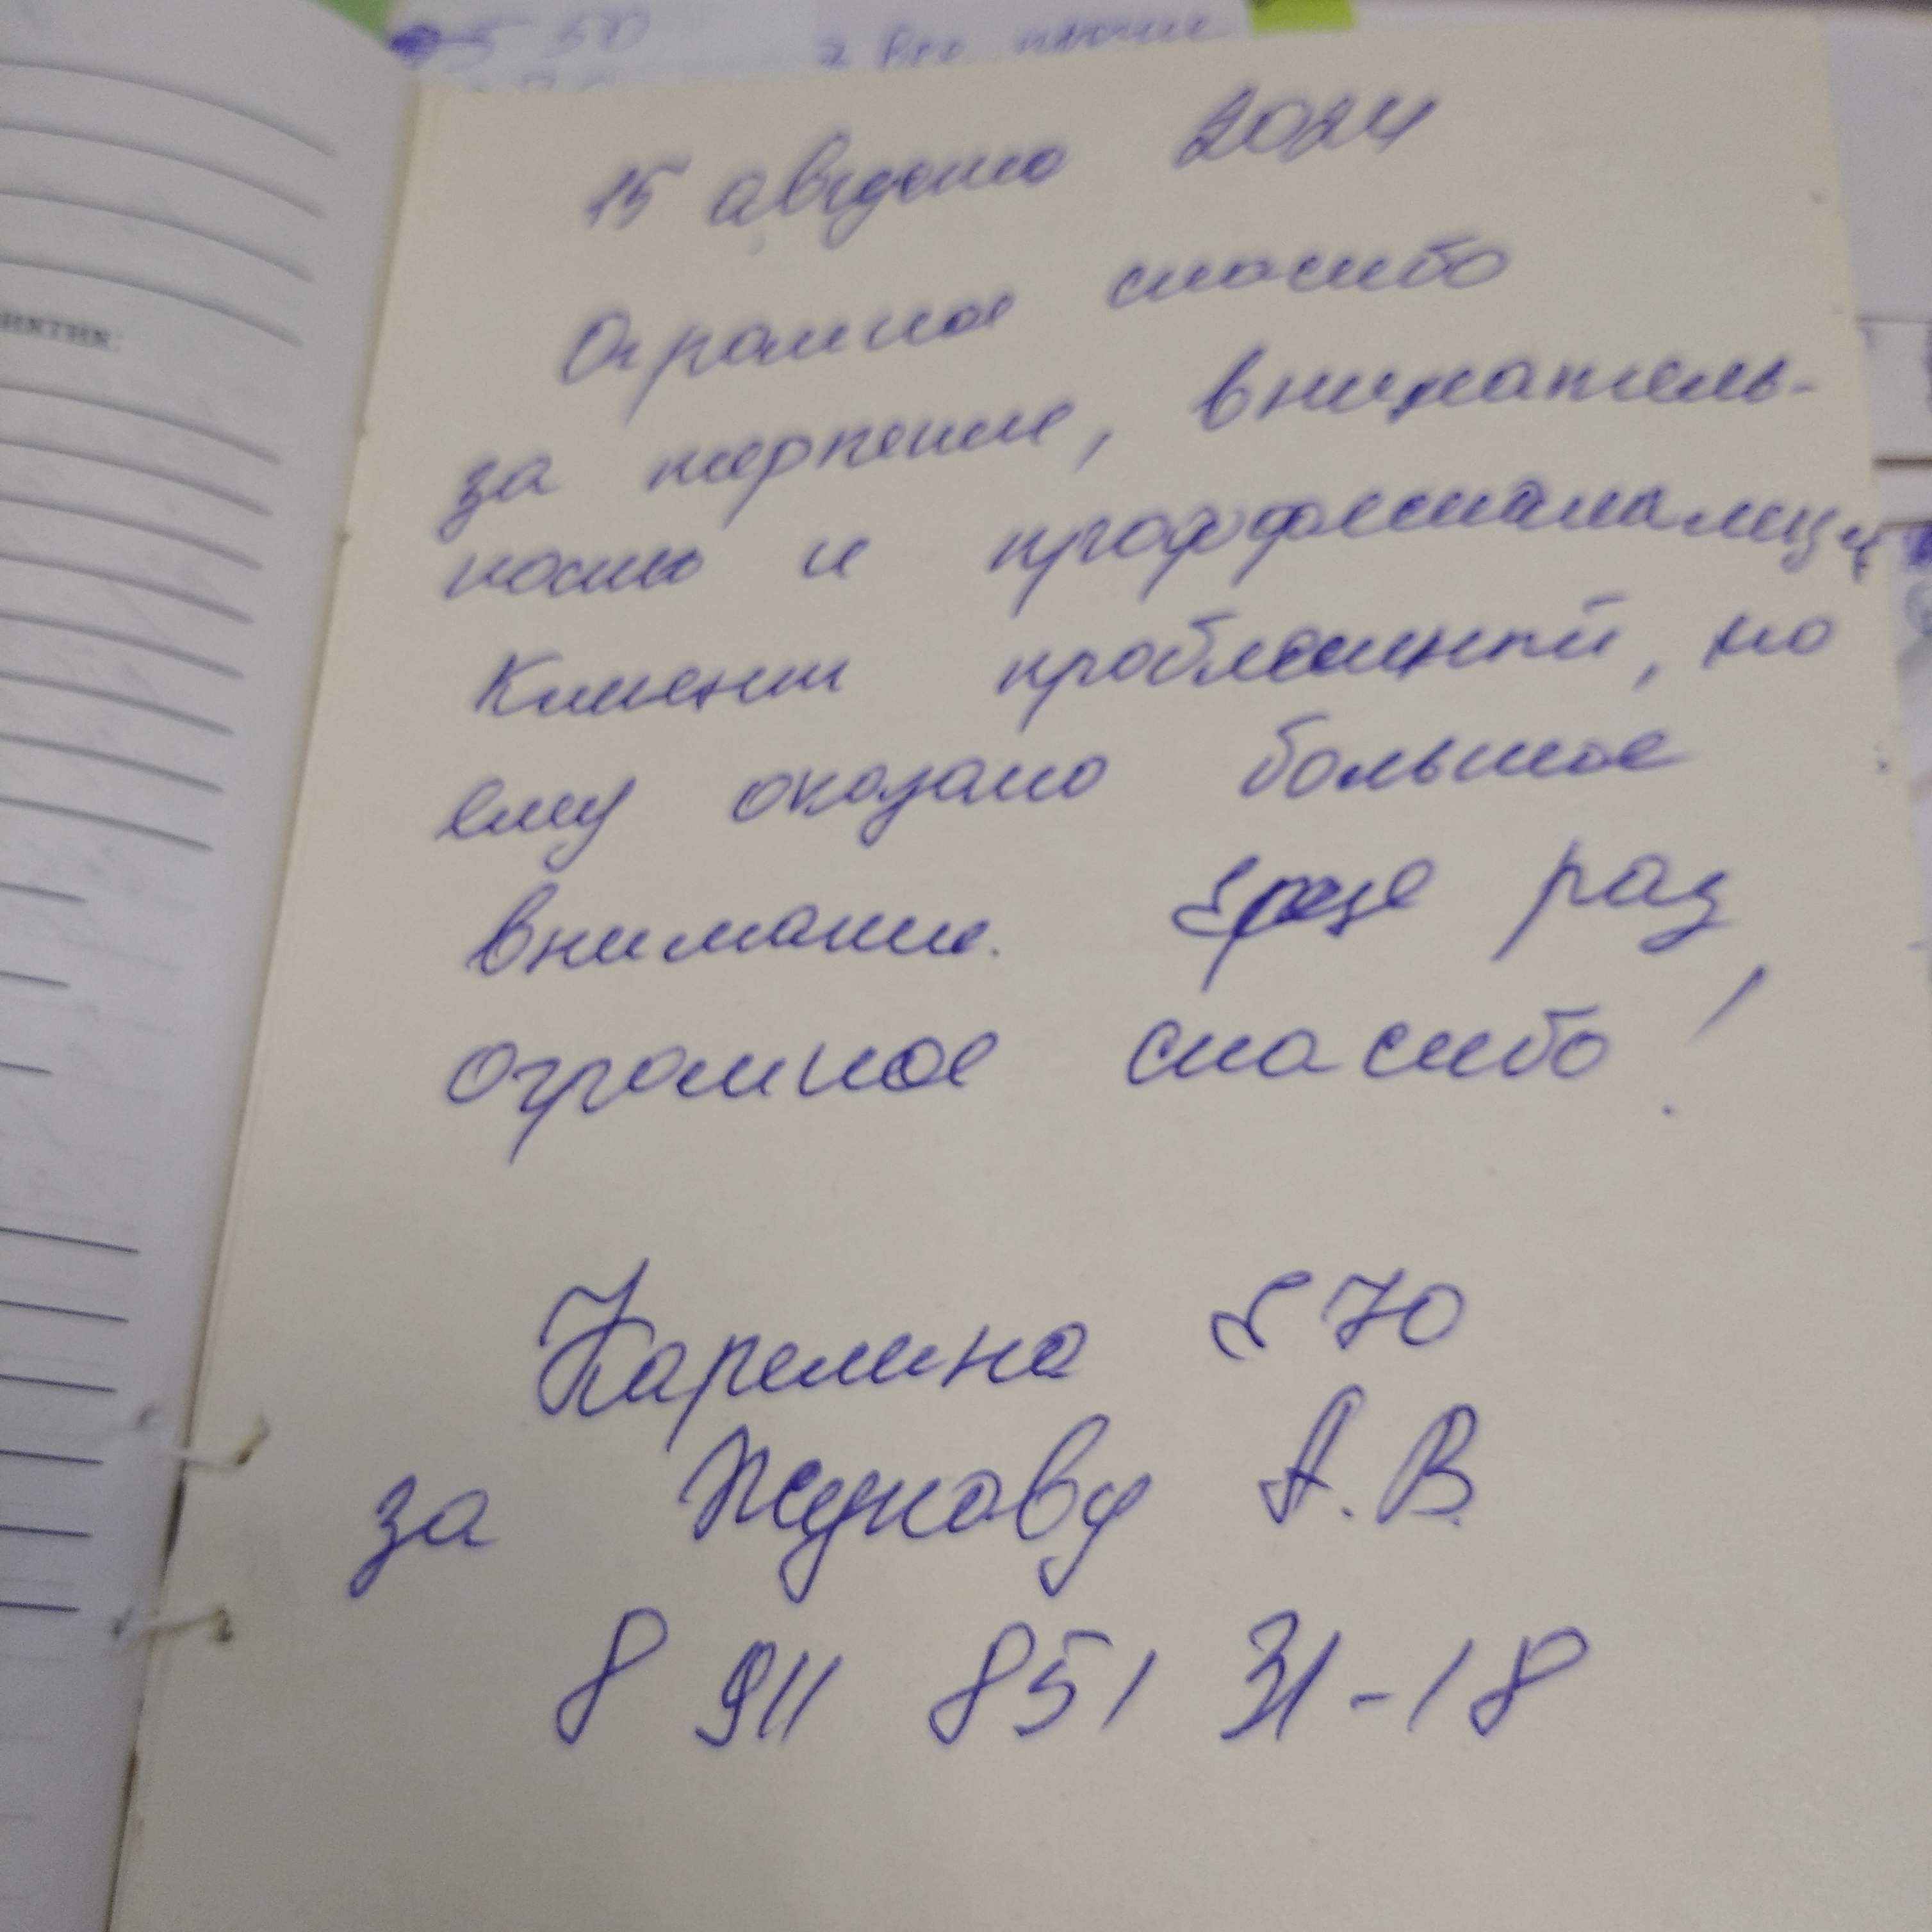 15 августа 2024
Огромное спасибо
за терпение, вниматель-
ность и проффесионализм
Клиент проблемный, но
ему оказано большое
внимание. Еще раз
огромное спасибо!
Карелина
за Жукову А.В.
8 911 851 31-18